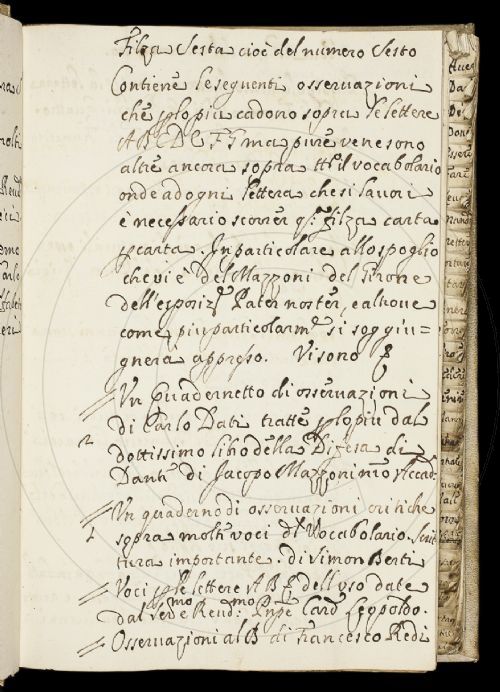 Filza Sesta cioè del numero Sesto
Contiene le seguenti osservazioni
che p lo più cadono sopra le lettere
A B C D E F S ma pure vene sono
altre ancora sopra ttº il vocabolario
onde ad ogni lettera che si lavori
è necessario scorrer qª filza carta
p carta. In particolare allo spoglio
che vi è del Mazzoni del Sirone
dell'esposizᵉ Pater noster, e altrove
come più particolarmᵉ si soggiu=
gnerà appresso. Vi sono
Un Quadernetto di osservazioni
di Carlo Dati tratte p lo più dal
dottissimo libro della Difesa di
Dante di Jacopo Mazzoni nrō Accadº
Un quaderno di osservazioni critiche
sopra molti voci dl Vocabolario. Scrit
tura importante. di Simon Berti
Voci p le lettere A B dell'uso date
dal Serᵐᵒ e Revdᵐᵒ Pnpe Card Leopoldo.
Osservazioni al B di Francesco Redi